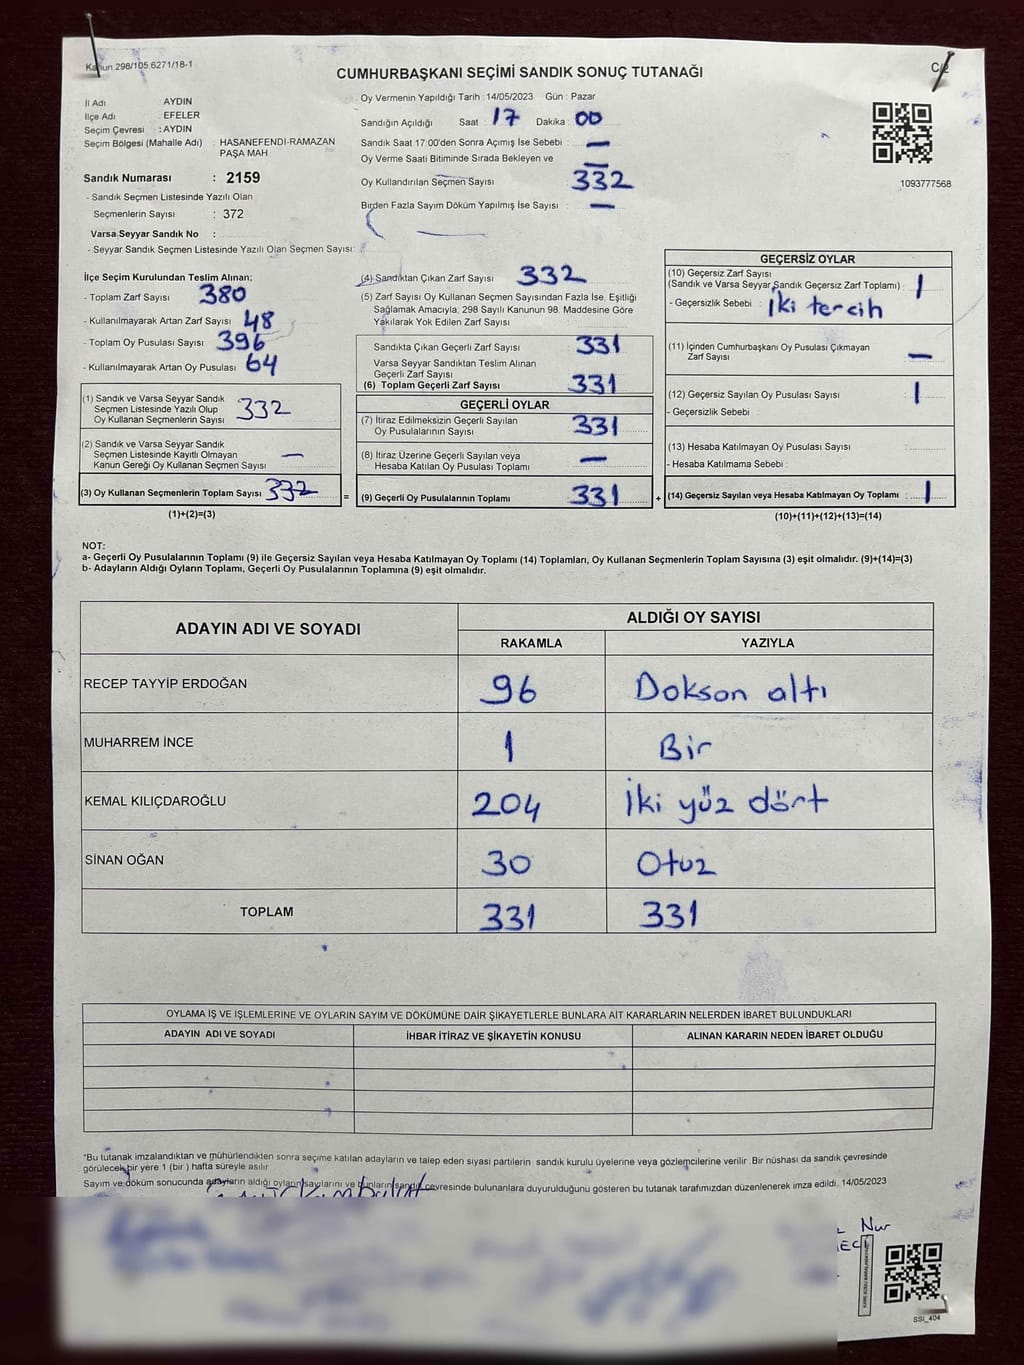 Kanun 298/105.6271/18-1
C/2
CUMHURBAŞKANI SEÇİMİ SANDIK SONUÇ TUTANAĞI
İl Adı AYDIN
İlçe Adı : EFELER
Seçim Çevresi : AYDIN
Seçim Bölgesi (Mahalle Adı) : HASANEFENDİ-RAMAZAN
PAŞA MAH
Sandık Numarası : 2159
- Sandık Seçmen Listesinde Yazılı Olan
Seçmenlerin Sayısı : 372
Varsa Seyyar Sandık No :
- Seyyar Sandık Seçmen Listesinde Yazılı Olan Seçmen Sayısı:
Oy Vermenin Yapıldığı Tarih : 14/05/2023 Gün : Pazar
Sandığın Açıldığı Saat : 17 Dakika : 00
Sandık Saat 17:00'den Sonra Açımış İse Sebebi : —
Oy Verme Saati Bitiminde Sırada Bekleyen ve
Oy Kullandırılan Seçmen Sayısı 332
Birden Fazla Sayım Döküm Yapılmış İse Sayısı : —
1093777568
İlçe Seçim Kurulundan Teslim Alınan;
- Toplam Zarf Sayısı : 380
- Kullanılmayarak Artan Zarf Sayısı : 48
- Toplam Oy Pusulası Sayısı : 396
- Kullanılmayarak Artan Oy Pusulası : 64
(1) Sandık ve Varsa Seyyar Sandık
Seçmen Listesinde Yazılı Olup
Oy Kullanan Seçmenlerin Sayısı : 332
(2) Sandık ve Varsa Seyyar Sandık
Seçmen Listesinde Kayıtlı Olmayan
Kanun Gereği Oy Kullanan Seçmen Sayısı : —
(3) Oy Kullanan Seçmenlerin Toplam Sayısı : 332
(1)+(2)=(3)
=
(4) Sandıktan Çıkan Zarf Sayısı : 332
(5) Zarf Sayısı Oy Kullanan Seçmen Sayısından Fazla İse, Eşitliği
Sağlamak Amacıyla, 298 Sayılı Kanunun 98. Maddesine Göre
Yakılarak Yok Edilen Zarf Sayısı :
Sandıkta Çıkan Geçerli Zarf Sayısı : 331
Varsa Seyyar Sandıktan Teslim Alınan
Geçerli Zarf Sayısı :
(6) Toplam Geçerli Zarf Sayısı : 331
GEÇERLİ OYLAR
(7) İtiraz Edilmeksizin Geçerli Sayılan
Oy Pusulalarının Sayısı : 331
(8) İtiraz Üzerine Geçerli Sayılan veya
Hesaba Katılan Oy Pusulası Toplamı : —
(9) Geçerli Oy Pusulalarının Toplamı : 331
+
GEÇERSİZ OYLAR
(10) Geçersiz Zarf Sayısı
(Sandık ve Varsa Seyyar Sandık Geçersiz Zarf Toplamı) : 1
- Geçersizlik Sebebi : İki tercih
(11) İçinden Cumhurbaşkanı Oy Pusulası Çıkmayan
Zarf Sayısı : —
(12) Geçersiz Sayılan Oy Pusulası Sayısı : 1
- Geçersizlik Sebebi :
(13) Hesaba Katılmayan Oy Pusulası Sayısı :
- Hesaba Katılmama Sebebi :
(14) Geçersiz Sayılan veya Hesaba Katılmayan Oy Toplamı : 1
(10)+(11)+(12)+(13)=(14)
NOT:
a- Geçerli Oy Pusulalarının Toplamı (9) ile Geçersiz Sayılan veya Hesaba Katılmayan Oy Toplamı (14) Toplamları, Oy Kullanan Seçmenlerin Toplam Sayısına (3) eşit olmalıdır. (9)+(14)=(3)
b- Adayların Aldığı Oyların Toplamı, Geçerli Oy Pusulalarının Toplamına (9) eşit olmalıdır.
ADAYIN ADI VE SOYADI
ALDIĞI OY SAYISI
RAKAMLA YAZIYLA
RECEP TAYYİP ERDOĞAN 96 Dokson altı
MUHARREM İNCE 1 Bir
KEMAL KILIÇDAROĞLU 204 İki yüz dört
SİNAN OĞAN 30 Otuz
TOPLAM 331 331
OYLAMA İŞ VE İŞLEMLERİNE VE OYLARIN SAYIM VE DÖKÜMÜNE DAİR ŞİKAYETLERLE BUNLARA AİT KARARLARIN NELERDEN İBARET BULUNDUKLARI
ADAYIN ADI VE SOYADI İHBAR İTİRAZ VE ŞİKAYETİN KONUSU ALINAN KARARIN NEDEN İBARET OLDUĞU
*Bu tutanak imzalandıktan ve mühürlendikten sonra seçime katılan adayların ve talep eden siyasi partilerin sandık kurulu üyelerine veya gözlemcilerine verilir. Bir nüshası da sandık çevresinde
görülecek bir yere 1 (bir) hafta süreyle asılır.
Sayım ve döküm sonucunda adayların aldığı oyların sayılarını ve bunların sandık çevresinde bulunanlara duyurulduğunu gösteren bu tutanak tarafımızdan düzenlenerek imza edildi. 14/05/2023
Nur
SSI_404